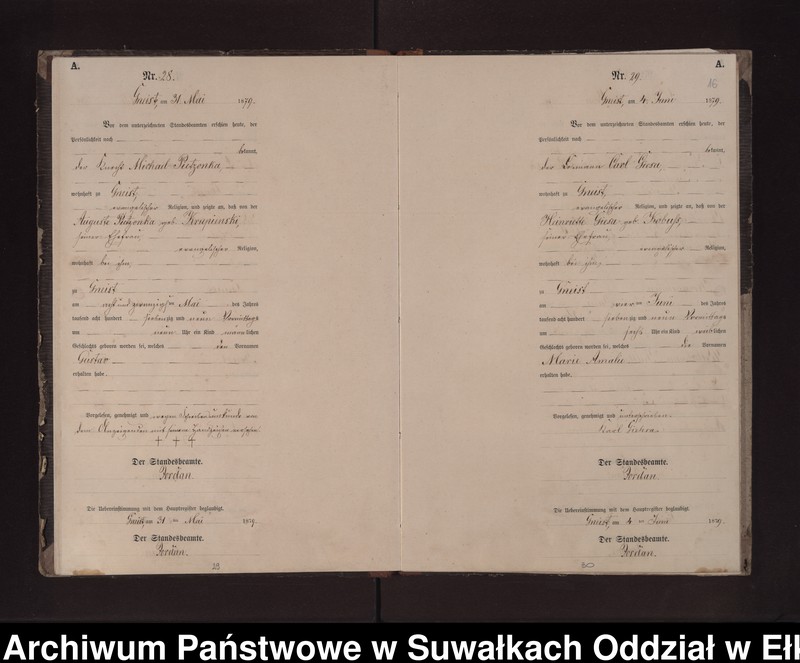 A.
Nr. 28.
Gneist, am 31. Mai 1879.
Vor dem unterzeichneten Standesbeamten erschien heute, der
Persönlichkeit nach
bekannt,
der Michael Pietzonka
wohnhaft zu Gneist,
evangelischer Religion, und zeigte an, daß von der
Auguste Pietzonka geb. Krupinski,
seiner Ehefrau,
evangelischer Religion,
wohnhaft bei ihm,
zu Gneist
am acht und zwanzigsten Mai des Jahres
tausend acht hundert siebenzig und neun Vormittags
um neun Uhr ein Kind männlichen
Geschlechts geboren worden sei, welches den Vornamen
Gustav
erhalten habe.
Vorgelesen, genehmigt und wegen Schreibensunkunde von
dem Anzeigenden mit seinem Handzeichen versehen
+ + +
Der Standesbeamte.
Jordan.
Die Uebereinstimmung mit dem Hauptregister beglaubigt.
Gneist, am 31 ten Mai 1879.
Der Standesbeamte.
Jordan.
29
A.
16
Nr. 29.
Gneist, am 4. Juni 1879.
Vor dem unterzeichneten Standesbeamten erschien heute, der
Persönlichkeit nach
bekannt,
der Losmann Carl
wohnhaft zu Gneist,
evangelischer Religion, und zeigte an, daß von der
Henriette geb.
seiner Ehefrau,
evangelischer Religion,
wohnhaft bei ihm,
zu Gneist
am vierten Juni des Jahres
tausend acht hundert siebenzig und neun Vormittags
um sechs Uhr ein Kind weiblichen
Geschlechts geboren worden sei, welches die Vornamen
Marie Amalie
erhalten habe.
Vorgelesen, genehmigt und unterschrieben.
Karl
Der Standesbeamte.
Jordan.
Die Uebereinstimmung mit dem Hauptregister beglaubigt.
Gneist, am 4 ten Juni 1879.
Der Standesbeamte.
Jordan.
30
Archiwum Państwowe w Suwałkach Oddział w Eł